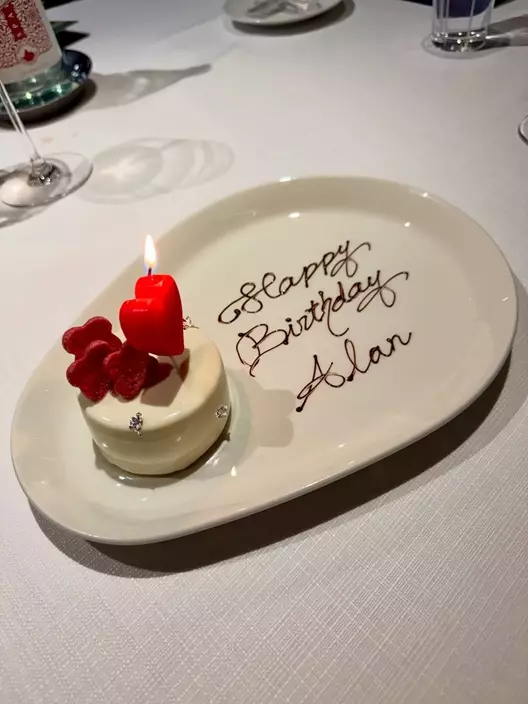 Happy
Birthday
Alan